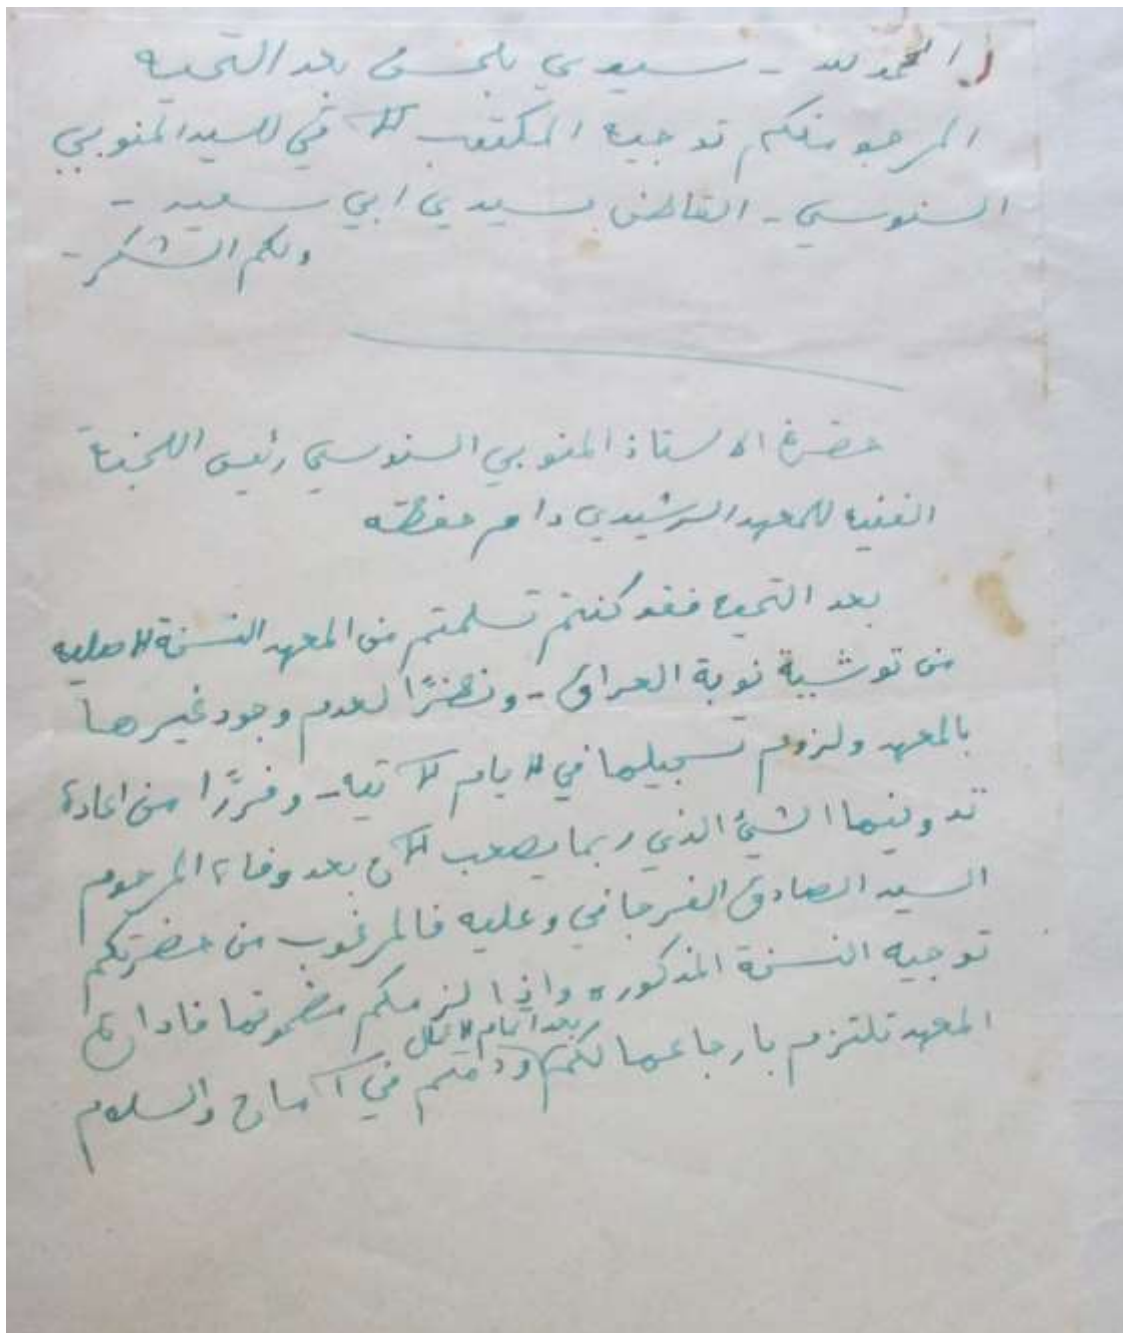 الحمد لله - سيدي بلحسن بعد التحية
المرجو منكم توجيه المكتوب الآتي للسيد المنوبي
السنوسي - القاطن بسيدي ابي سعيد -
ولكم الشكر -
حضرة الاستاذ المنوبي السنوسي رئيس اللجنة
الفنية للمعهد الرشيدي دام حفظه
بعد التحية فقد كنتم تسلمتم من المعهد النسخة الاصلية
من توشية نوبة العراق - ونظرًا لعدم وجود غيرها
بالمعهد ولزوم تسجيلها في الايام الآتية - وفررًا من اعادة
تدوينها الشيء الذي ربما يصعب الآن بعد وفاة المرحوم
السيد الصادق الفرجاني وعليه فالمرغوب من حضرتكم
توجيه النسخة المذكورة واذا لزمكم فادارة
بعد اتمام الاعمال
المعهد تلتزم بارجاعها لكم ودمتم في آمان والسلام